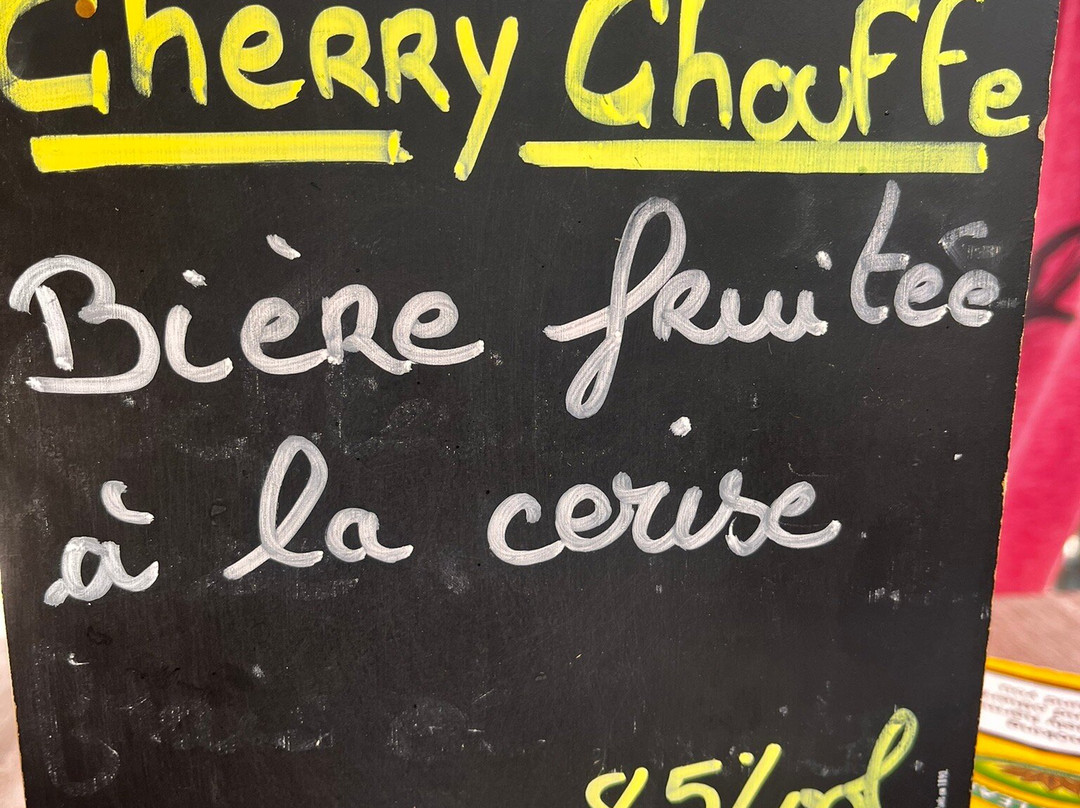 Cherry Chouffe
Bière fruitée
à la cerise